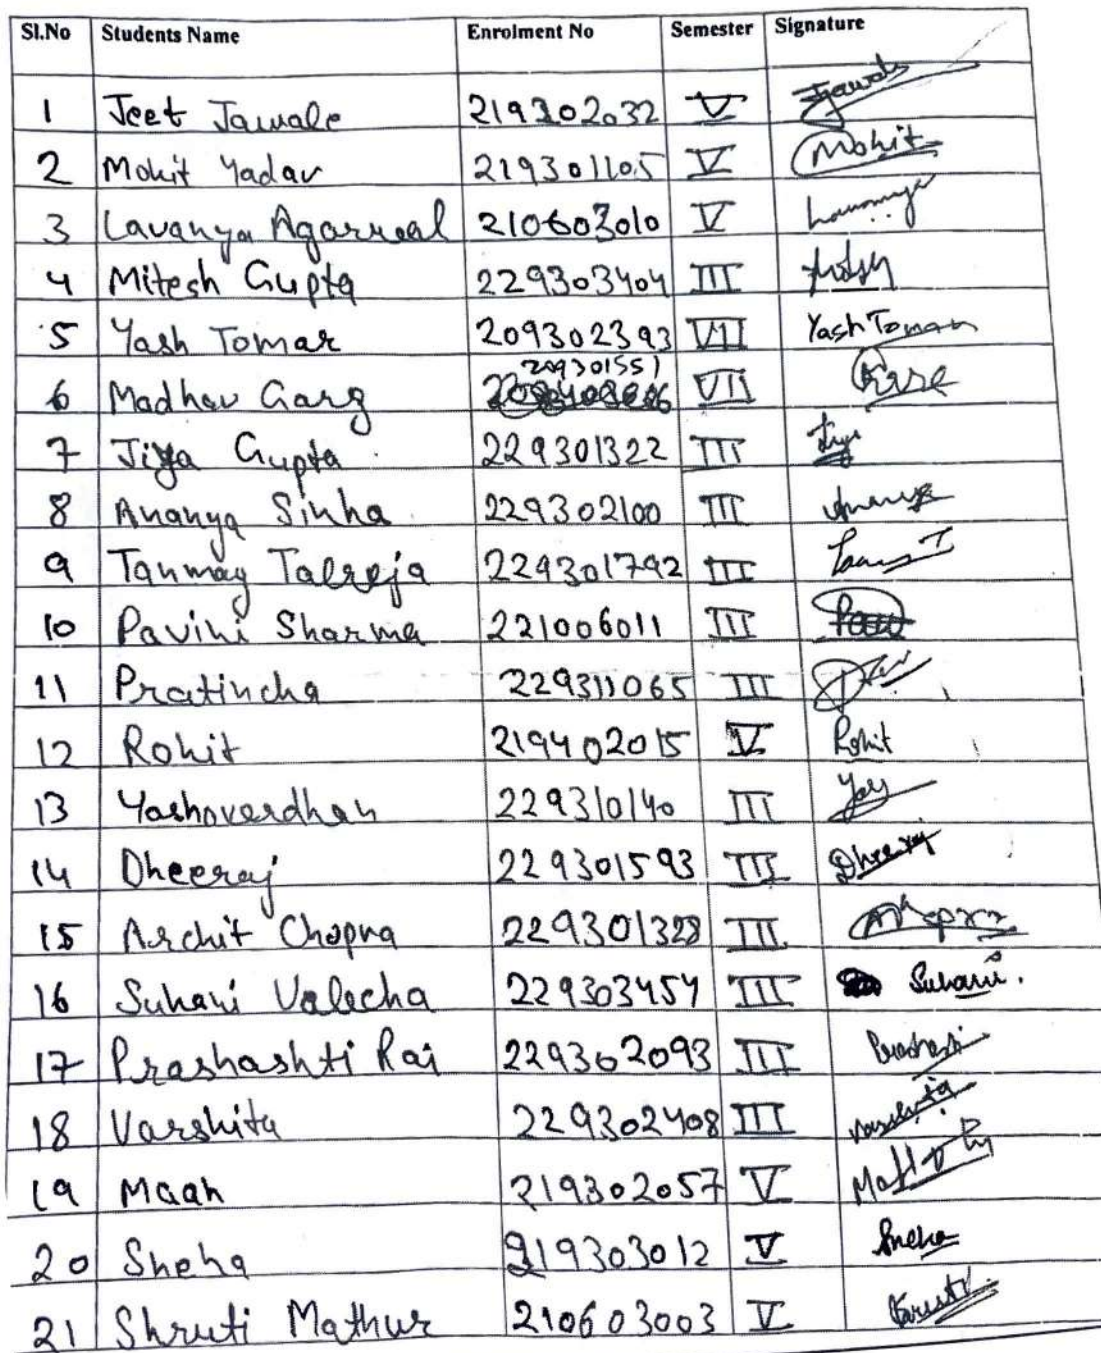 Sl.No Students Name Enrolment No Semester Signature
1 Jeet Jawale 219302032 V Jjawale
2 Mohit Yadav 219301105 V Mohit
3 Lavanya Agarwal 210603010 V Lavanya
4 Mitesh Gupta 229303404 III
5 Yash Tomar 209302393 VII Yash Tomar
209301551
6 Madhav Garg VII
7 Jiya Gupta 229301322 III Jiya
8 Ananya Sinha 229302100 III Ananya
9 Tanmay Talreja 229301792 III
10 Pavini Sharma 221006011 III
11 Pratincha 229311065 III
12 Rohit 219402015 V Rohit
13 Yashovardhan 229310140 III
14 Dheeraj 229301593 III Dheeraj
15 Archit Chopra 229301328 III
16 Suhani Valecha 229303454 III Suhani.
17 Prashashti Rai 229302093 III
18 Varshita 229302408 III Varshita
19 Maan 219302057 V
20 Sneha 219303012 V Sneha
21 Shruti Mathur 210603003 V